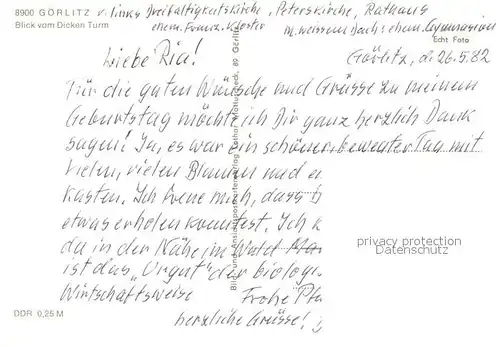 8900 GÖRLITZ v. links Dreifaltigkeitskirche, Peterskirche, Rathaus
Blick vom Dicken Turm ehem. Franz. Kloster m. weissem Dach: ehem. Gymnasium
Echt Foto
Görlitz, d. 26.5.82
Liebe Ria!
Für die guten Wünsche und Grüsse zu meinem
Geburtstag möcht ich Dir ganz herzlich Dank
sagen! Ja, es war ein schöner, bewegter Tag mit
vielen, vielen Blumen und
kasten. Ich freue mich, dass
etwas erholen konntest. Ich
da in der Nähe im Wald
ist das "Urgut" der biologi
Wirtschaftsweise Frohe
herzliche Grüsse!
privacy protection
Datenschutz
Bild und Heimat
DDR 0,25 M